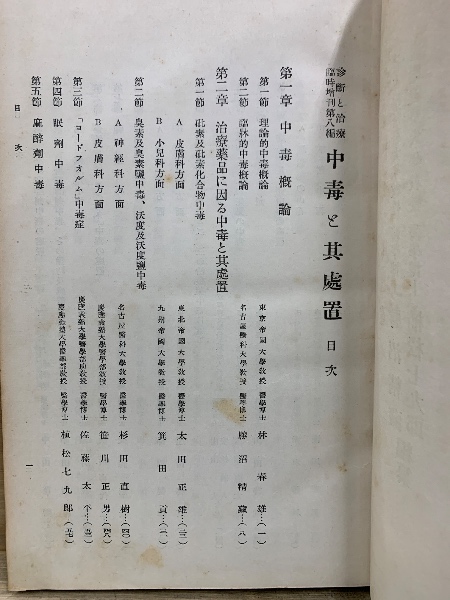 診斷と治療
臨時增刊第八編
中毒と其處置 目次
第一章 中毒概論
第一節 理論的中毒概論
東京帝國大學敎授 醫學博士 林 春雄…(一)
第二節 臨牀的中毒概論
名古屋醫科大學敎授 醫學博士 勝沼精藏…(八)
第二章 治療藥品に因る中毒と其處置
第一節 砒素及砒素化合物中毒
A 皮膚科方面
東北帝國大學敎授 醫學博士 太田正雄…(三)
B 小兒科方面
九州帝國大學敎授 醫學博士 箕田 貢…
第二節 臭素及臭素鹽中毒、沃度及沃度鹽中毒
A 神經科方面
名古屋醫科大學敎授 醫學博士 杉田直樹…(四〇)
B 皮膚科方面
慶應義塾大學醫學部敎授 醫學博士 笹川正男…(四八)
第三節 「ヨードフオルム」中毒症
慶應義塾大學醫學部助敎授 醫學博士 佐藤太平…
第四節 眠劑中毒
第五節 麻醉劑中毒
慶應義塾大學醫學部敎授 醫學博士 植松七九郎…
目次
一